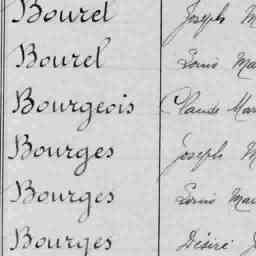 Bourel Joseph M
Bourel Louis Ma
Bourgeois Claude Mar
Bourges Joseph M
Bourges Louis Mar
Bourges Désiré J